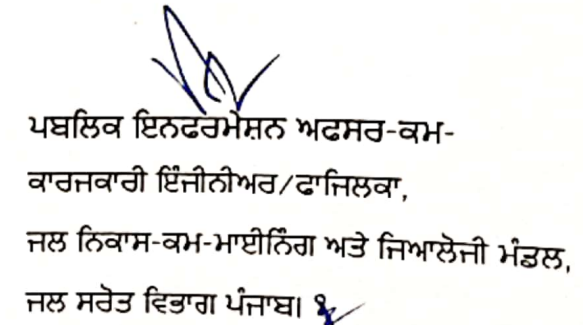 ਪਬਲਿਕ ਇਨਫਰਮੇਸ਼ਨ ਅਫਸਰ-ਕਮ-
ਕਾਰਜਕਾਰੀ ਇੰਜੀਨੀਅਰ/ਫਾਜਿਲਕਾ,
ਜਲ ਨਿਕਾਸ-ਕਮ-ਮਾਈਨਿੰਗ ਅਤੇ ਜਿਆਲੋਜੀ ਮੰਡਲ,
ਜਲ ਸਰੋਤ ਵਿਭਾਗ ਪੰਜਾਬ।